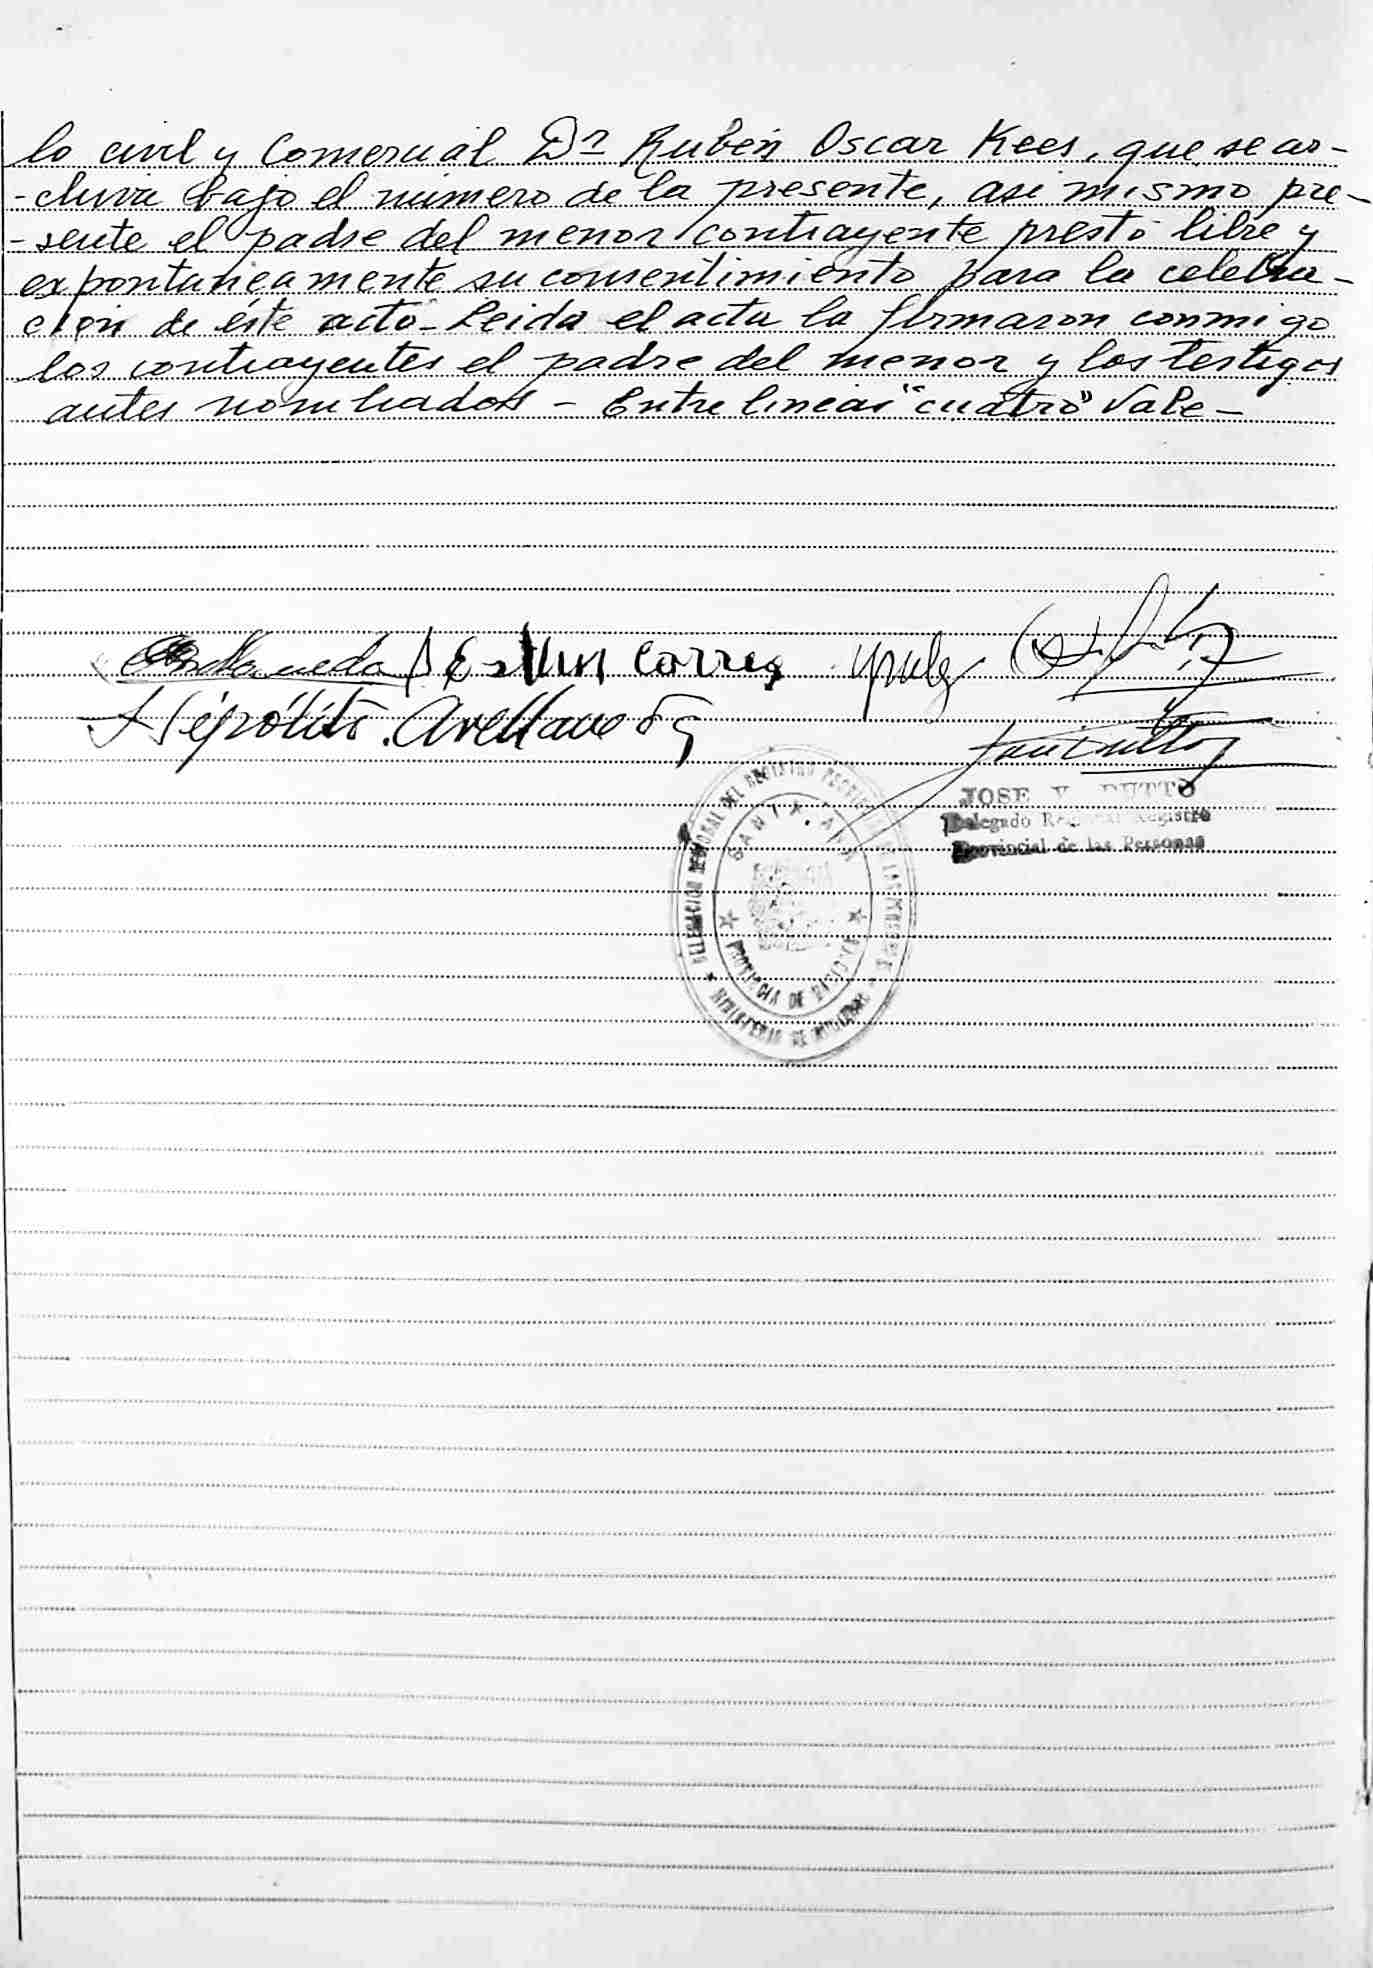 lo civil y Comercial Dr Rubén Oscar Kees, que se ar-
-chiva bajo el número de la presente, asi mismo pre-
-sente el padre del menor contrayente prestó libre y
expontaneamente su consentimiento para la celebra-
ción de éste acto- Leida el acta la firmaron conmigo
los contrayentes el padre del menor y los testigos
antes nombrados - Entre lineas "cuatro" Vale-
Correa
Hipólito. Avellaneda
JOSE V. DUTTO
Delegado Regional Registro
Provincial de las Personas
DELEGACION REGIONAL DEL REGISTRO PROVINCIAL DE LAS PERSONAS
PROVINCIA DE
MINISTERIO DE GOBIERNO